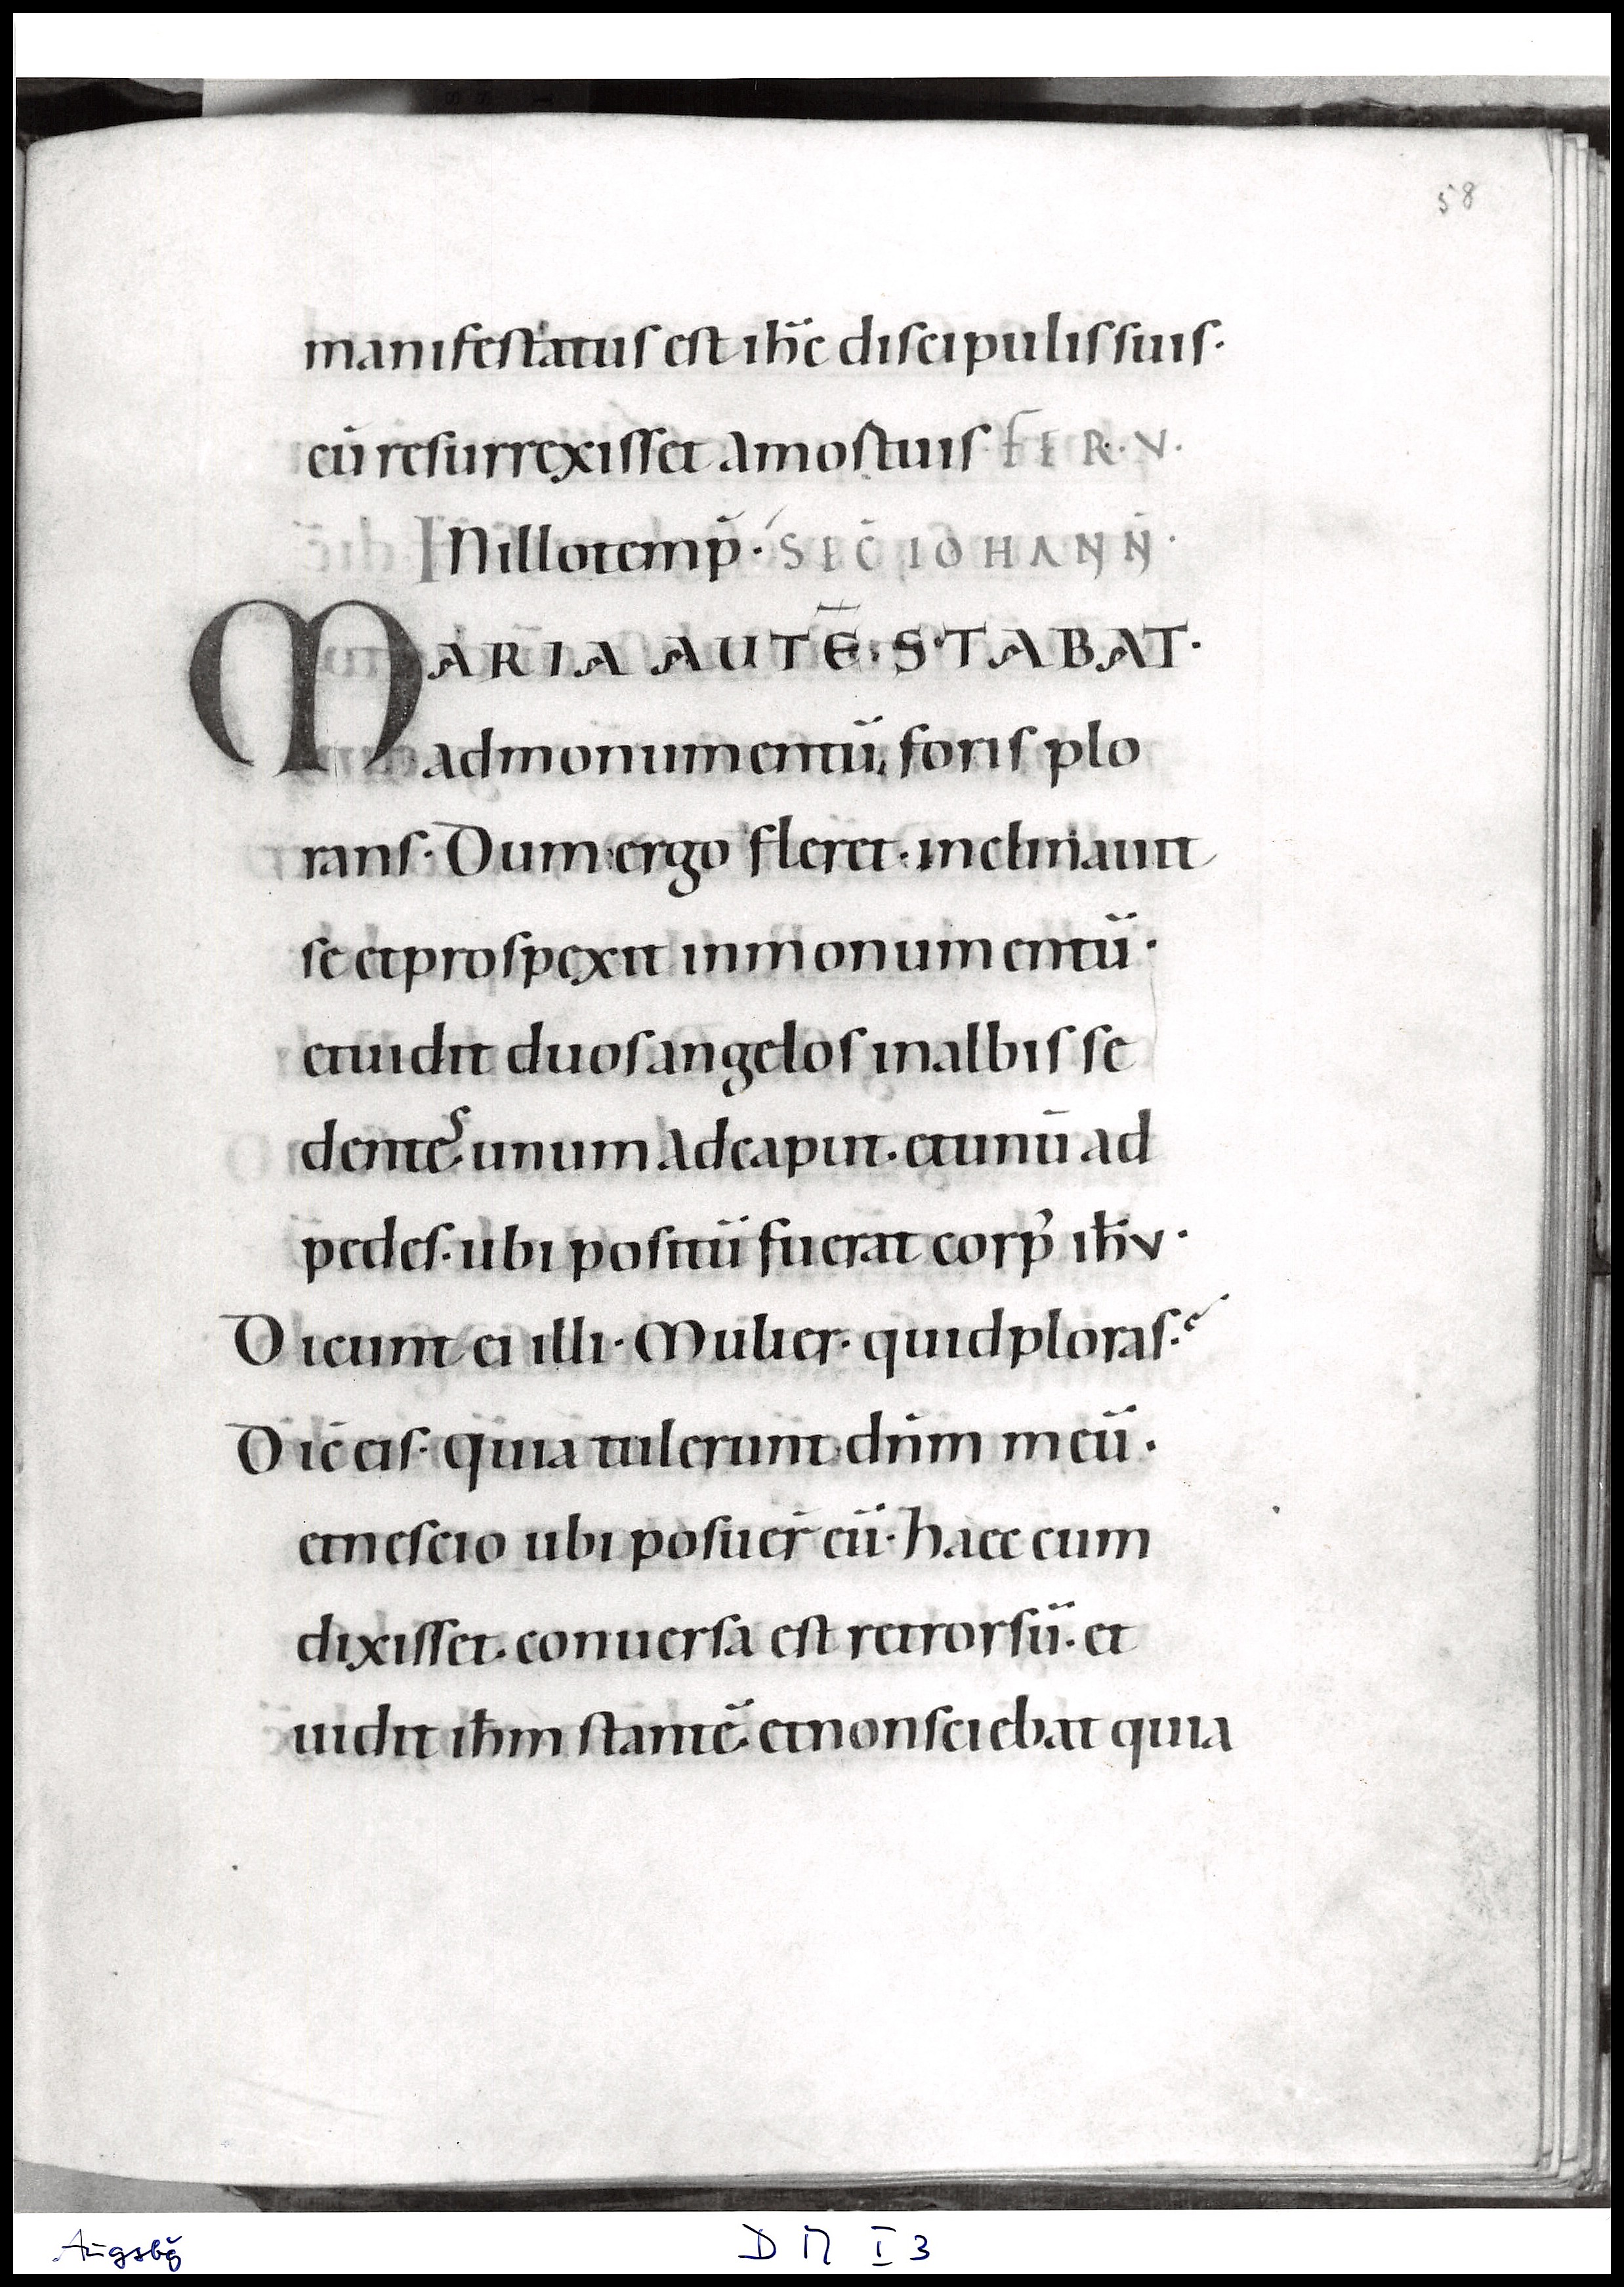 58
manifestatus est ihc̄ discipulis suis·
cū resurrexisset a mortuis FER·V·
INillo temp̄· SEC̄ IOHANN̄·
MARIA AUTĒ· STABAT·
ad monumentū, foris plo
rans· Dum ergo fleret· inclinauit
se et prospexit in monumentū·
et uidit duos angelos in albis se
dentes· unum ad caput· et unū ad
pedes· ubi positū fuerat corp᾿ ihū·
Dicunt ei illi· Mulier· quid ploras·
Dic̄ eis· quia tulerunt dn̄m meū·
et nescio ubi posuer̄ eū· haec cum
dixisset· conuersa est retrorsū· et
uidit ihm̄ stantē· et non sciebat quia
Augsbg DM I 3